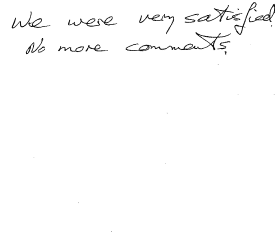 We were very satisfied.
No more comments.